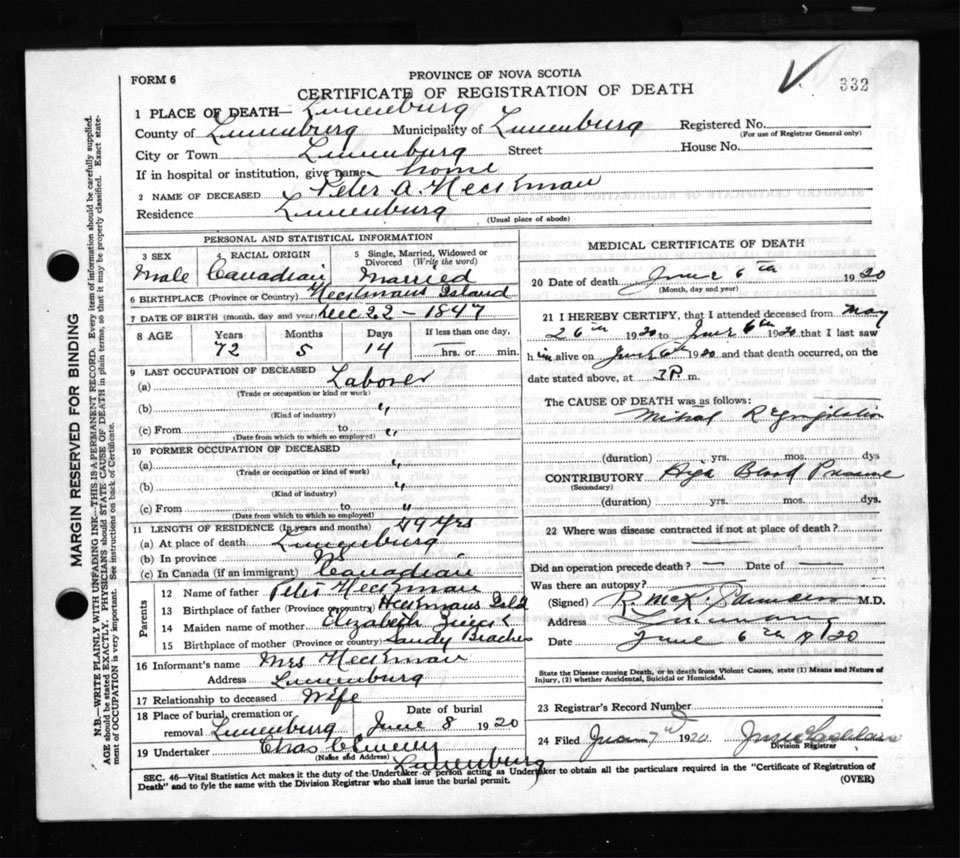 FORM 6
PROVINCE OF NOVA SCOTIA
CERTIFICATE OF REGISTRATION OF DEATH
332
1 PLACE OF DEATH— Lunenburg
County of Lunenburg Municipality of Lunenburg Registered No.
(For use of Registrar General only)
City or Town Lunenburg Street House No.
If in hospital or institution, give name home
2 NAME OF DECEASED Peter A. Heckman
Residence Lunenburg
(Usual place of abode)
PERSONAL AND STATISTICAL INFORMATION
3 SEX Male
RACIAL ORIGIN Canadian
5 Single, Married, Widowed or Divorced (Write the word) Married
6 BIRTHPLACE (Province or Country) Heckmans Island
7 DATE OF BIRTH (month, day and year) Dec 22 - 1847
8 AGE Years Months Days If less than one day,
72 5 14 hrs. or min.
9 LAST OCCUPATION OF DECEASED
(a) Laborer
(Trade or occupation or kind or work)
(b) "
(Kind of industry)
(c) From to "
(Date from which to which so employed)
10 FORMER OCCUPATION OF DECEASED
(a) "
(Trade or occupation or kind of work)
(b) "
(Kind of industry)
(c) From to "
(Date from which to which so employed)
11 LENGTH OF RESIDENCE (In years and months) 49 yrs
(a) At place of death Lunenburg
(b) In province
(c) In Canada (if an immigrant) Canadian
Parents
12 Name of father Peter Heckman
13 Birthplace of father (Province or country) Heckmans Isld
14 Maiden name of mother Elizabeth
15 Birthplace of mother (Province or country) Sandy Beaches
16 Informant's name Mrs Heckman
Address Lunenburg
17 Relationship to deceased Wife
18 Place of burial, cremation or removal Lunenburg
Date of burial June 8 1920
19 Undertaker Chas
(Name and Address) Lunenburg
MEDICAL CERTIFICATE OF DEATH
20 Date of death June 6th 1920
(Month, day and year)
21 I HEREBY CERTIFY, that I attended deceased from May
26th 1920 to June 6th 1920 that I last saw
him alive on June 6th 1920 and that death occurred, on the
date stated above, at 3P. m.
The CAUSE OF DEATH was as follows:
Mitral Regurgitation
(duration) yrs. mos. dys.
CONTRIBUTORY High Blood Pressure
(Secondary)
(duration) yrs. mos. dys.
22 Where was disease contracted if not at place of death?
Did an operation precede death — Date of —
Was there an autopsy?
(Signed) R. McK. Saunders M.D.
Address Lunenburg
Date June 6th 1920
State the Disease causing Death, or in death from Violent Causes, state (1) Means and Nature of
Injury, (2) whether Accidental, Suicidal or Homicidal.
23 Registrar's Record Number
24 Filed June 7th 1920
Division Registrar
SEC. 46—Vital Statistics Act makes it the duty of the Undertaker or person acting as Undertaker to obtain all the particulars required in the "Certificate of Registration of
Death" and to fyle the same with the Division Registrar who shall issue the burial permit.
(OVER)
MARGIN RESERVED FOR BINDING
N.B.—WRITE PLAINLY WITH UNFADING INK—THIS IS A PERMANENT RECORD. Every item of information should be carefully supplied.
AGE should be stated EXACTLY. PHYSICIANS should STATE CAUSE OF DEATH in plain terms, so that it may be properly classified. Exact state-
ment of OCCUPATION is very important. See instructions on back of Certificate.